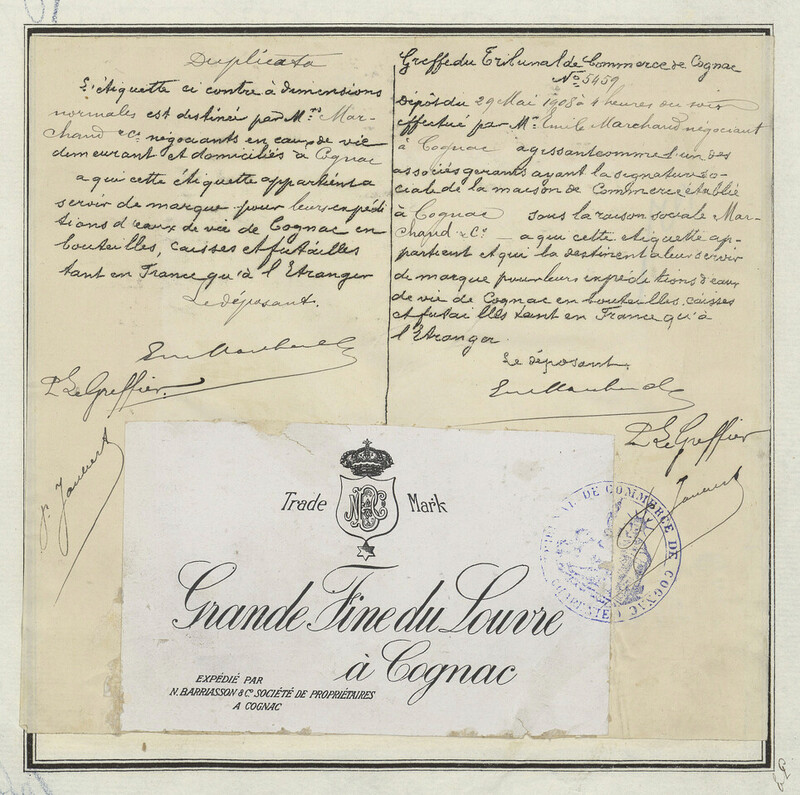 Duplicata
L'étiquette ci contre à dimensions
normales est destinée par Mrs Mar-
chand & Co négociants en eaux de vie
demeurant et domiciliés à Cognac
a qui cette étiquette appartient a
servir de marque pour leurs expédi
tions d'eaux de vie de Cognac en
bouteilles, caisses et futailles
tant en France qu'à l'Etranger
Le déposant.
Em Marchand
P. Le Greffier.
Greffe du Tribunal de Commerce de Cognac
No 5459
Dépôt du 29 Mai 1908 à 4 heures du soir
effectué par Mr Emile Marchand négociant
à Cognac agissant comme l'un des
associés gerants ayant la signature so-
ciale de la maison de Commerce établie
à Cognac sous la raison sociale Mar-
chand & Co a qui cette etiquette ap-
partient et qui la destinent a leur servir
de marque pour leurs expéditions d'eaux
de vie de Cognac en bouteilles, caisses
et futailles tant en France qu'à
l'Etranger.
Le déposant.
Em Marchand
P. Le Greffier
Trade Mark
Grande Fine du Louvre
à Cognac
EXPÉDIÉ PAR
N. BARRIASSON & Co SOCIÉTÉ DE PROPRIÉTAIRES
A COGNAC
TRIBUNAL DE COMMERCE DE COGNAC
(CHARENTE)